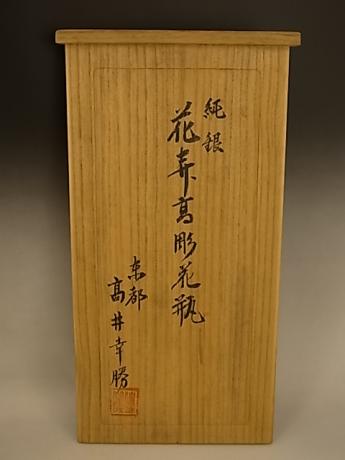 純銀
花弄高彫花瓶
东都
高井幸勝